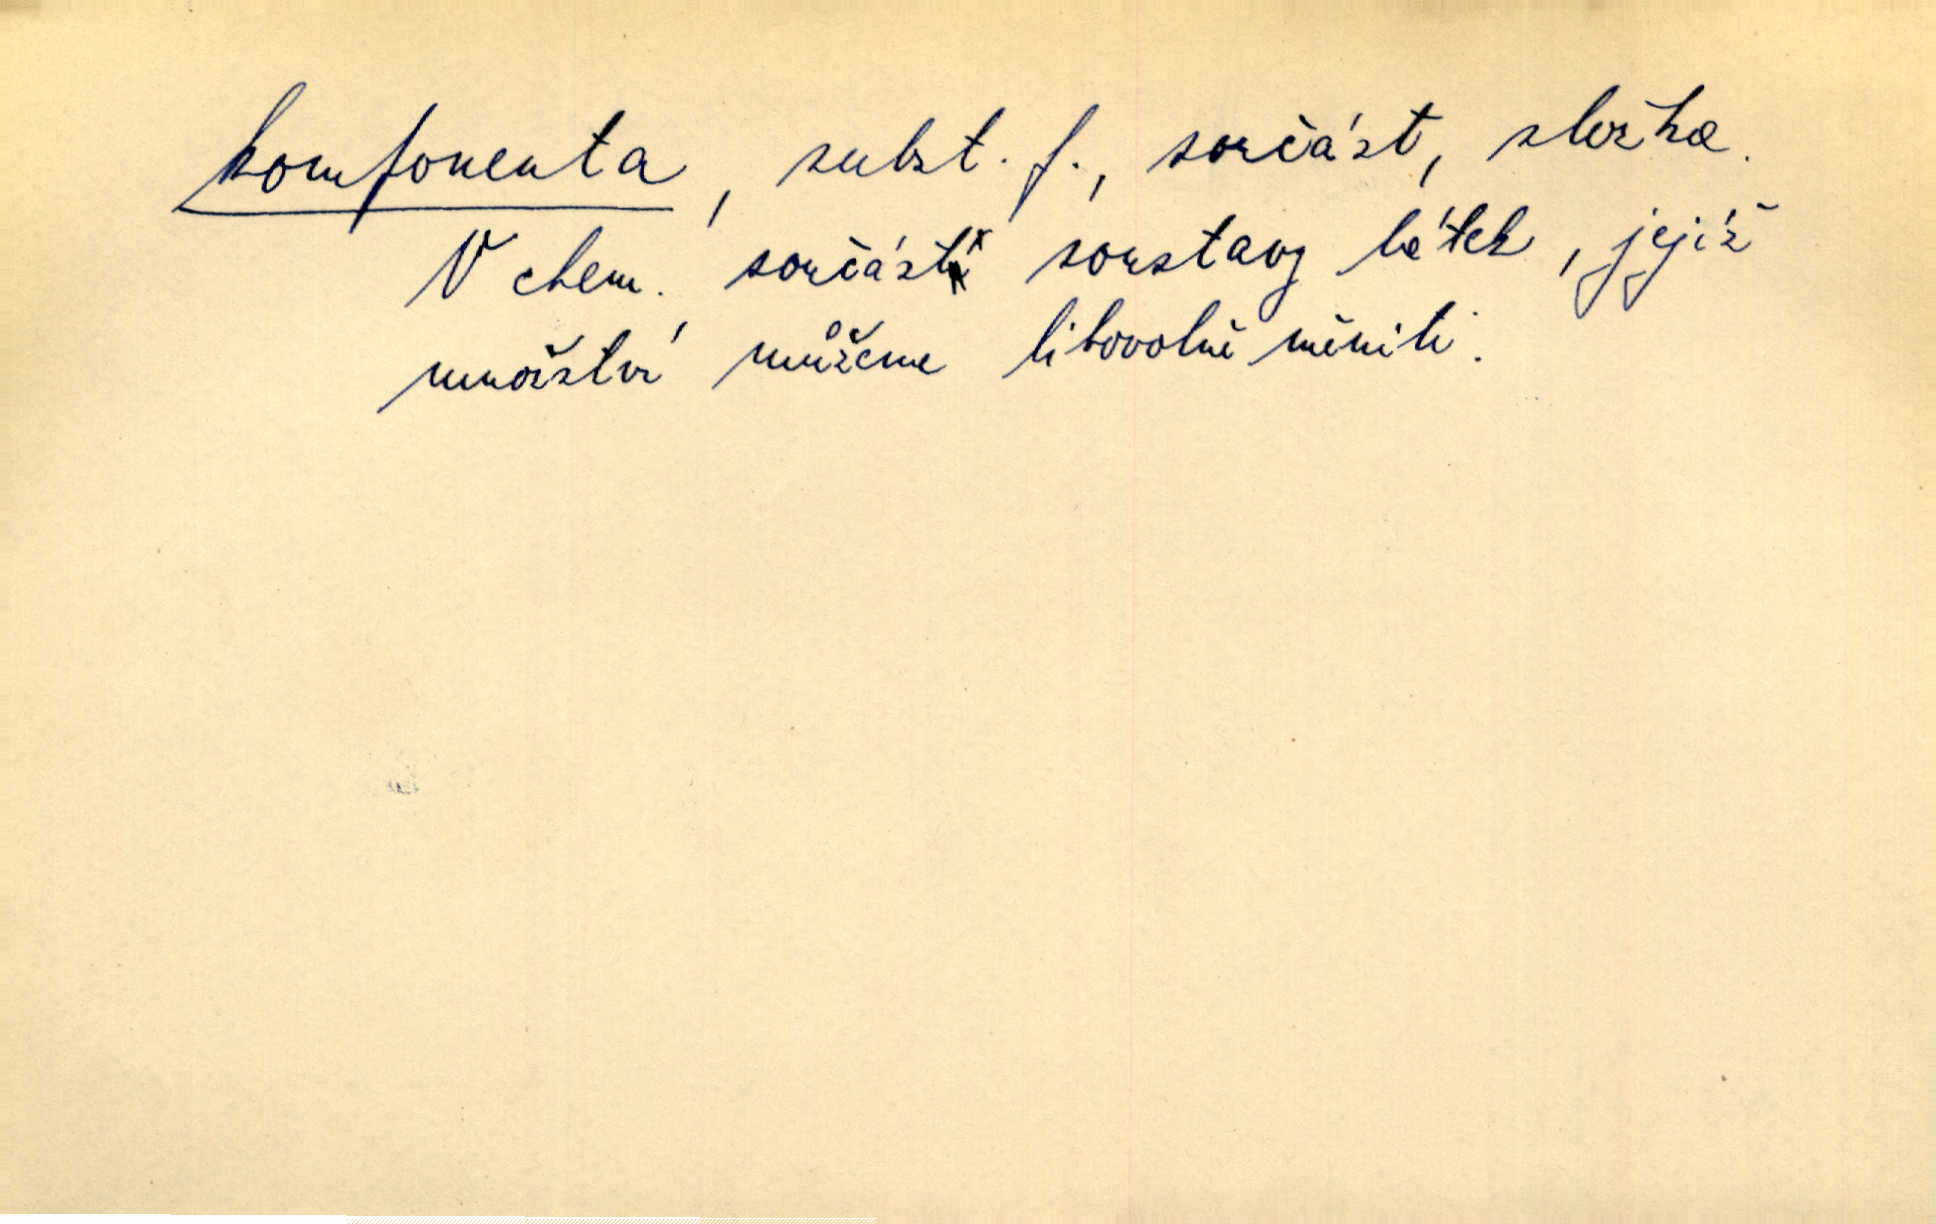 komponenta, subst. f., součást, složka.
V chem. součást soustavy látek, jejíž
množství můžeme libovolně měniti.